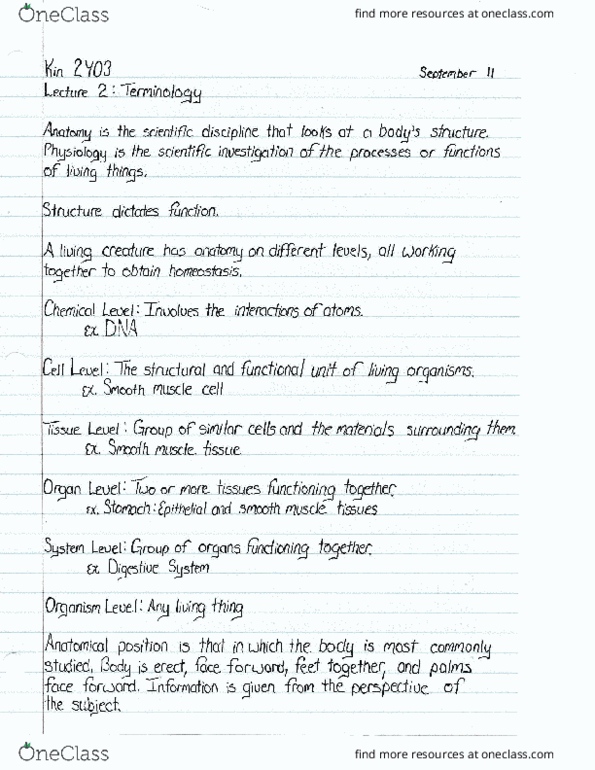 OneClass
find more resources at oneclass.com
Kin 2Y03
September 11
Lecture 2: Terminology
Anatomy is the scientific discipline that looks at a body's structure.
Physiology is the scientific investigation of the processes or functions
of living things.
Structure dictates function.
A living creature has anatomy on different levels, all working
together to obtain homeostasis.
Chemical Level: Involves the interactions of atoms.
Ex. DNA
Cell Level: The structural and functional unit of living organisms.
Ex. Smooth muscle cell
Tissue Level: Group of similar cells and the materials surrounding them
Ex. Smooth muscle tissue
Organ Level: Two or more tissues functioning together.
Ex. Stomach: Epithelial and smooth muscle tissues
System Level: Group of organs functioning together.
Ex. Digestive System
Organism Level: Any living thing
Anatomical position is that in which the body is most commonly
studied. Body is erect, face forward, feet together, and palms
face forward. Information is given from the perspective of
the subject.
OneClass
find more resources at oneclass.com